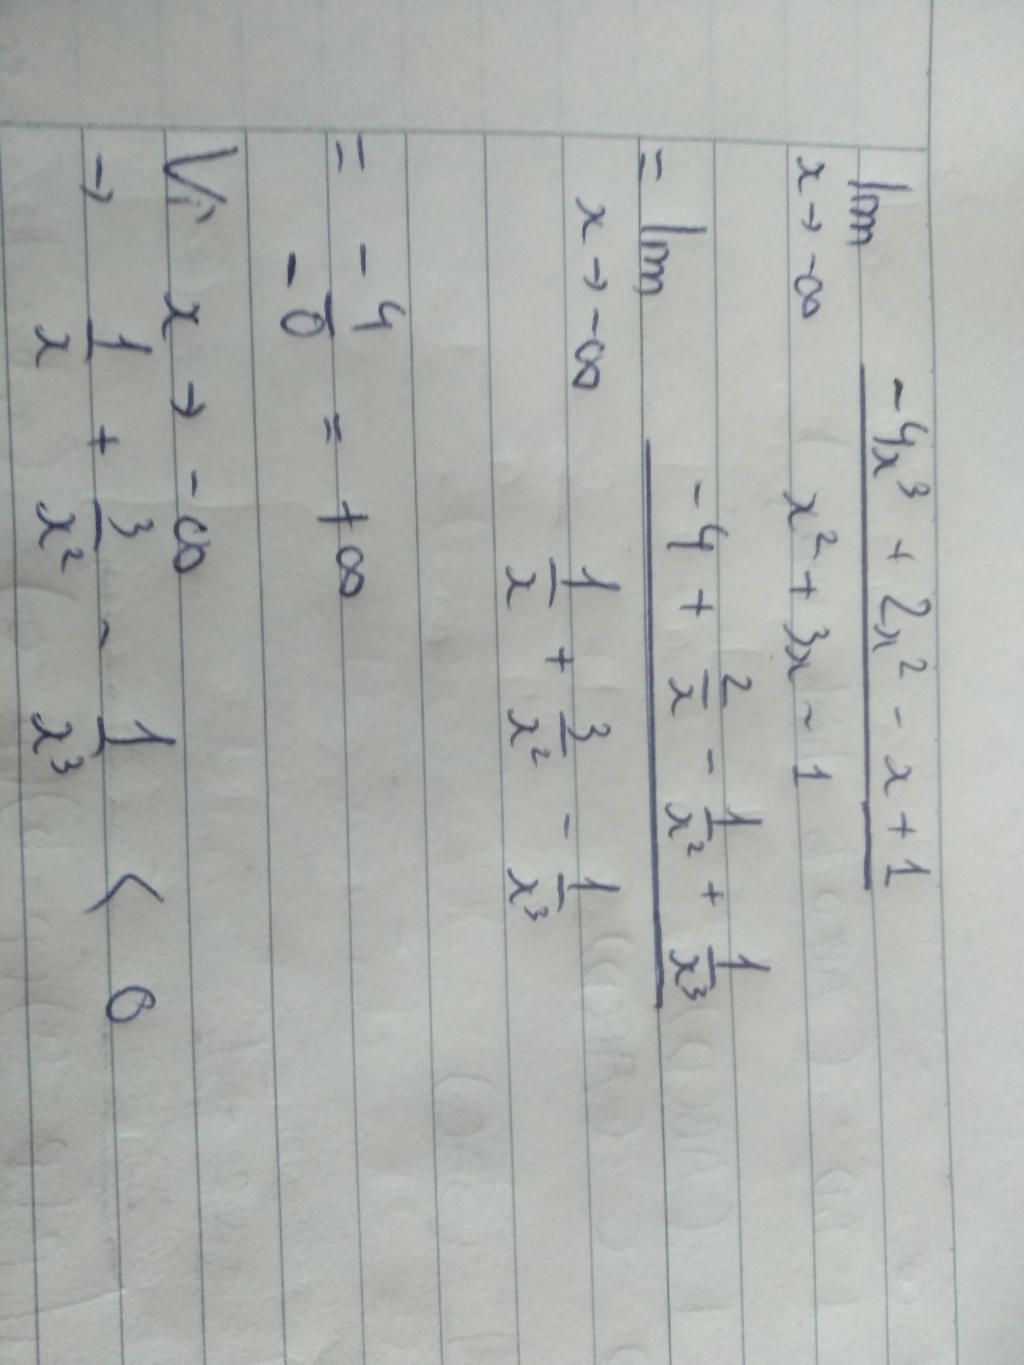 lim x→-∞ (-4x³ + 2x² - x + 1)/(x² + 3x - 1)
= lim x→-∞ (-4 + 2/x - 1/x² + 1/x³)/(1/x + 3/x² - 1/x³)
= -4/-0 = +∞
Vì x → -∞
→ 1/x + 3/x² - 1/x³ < 0